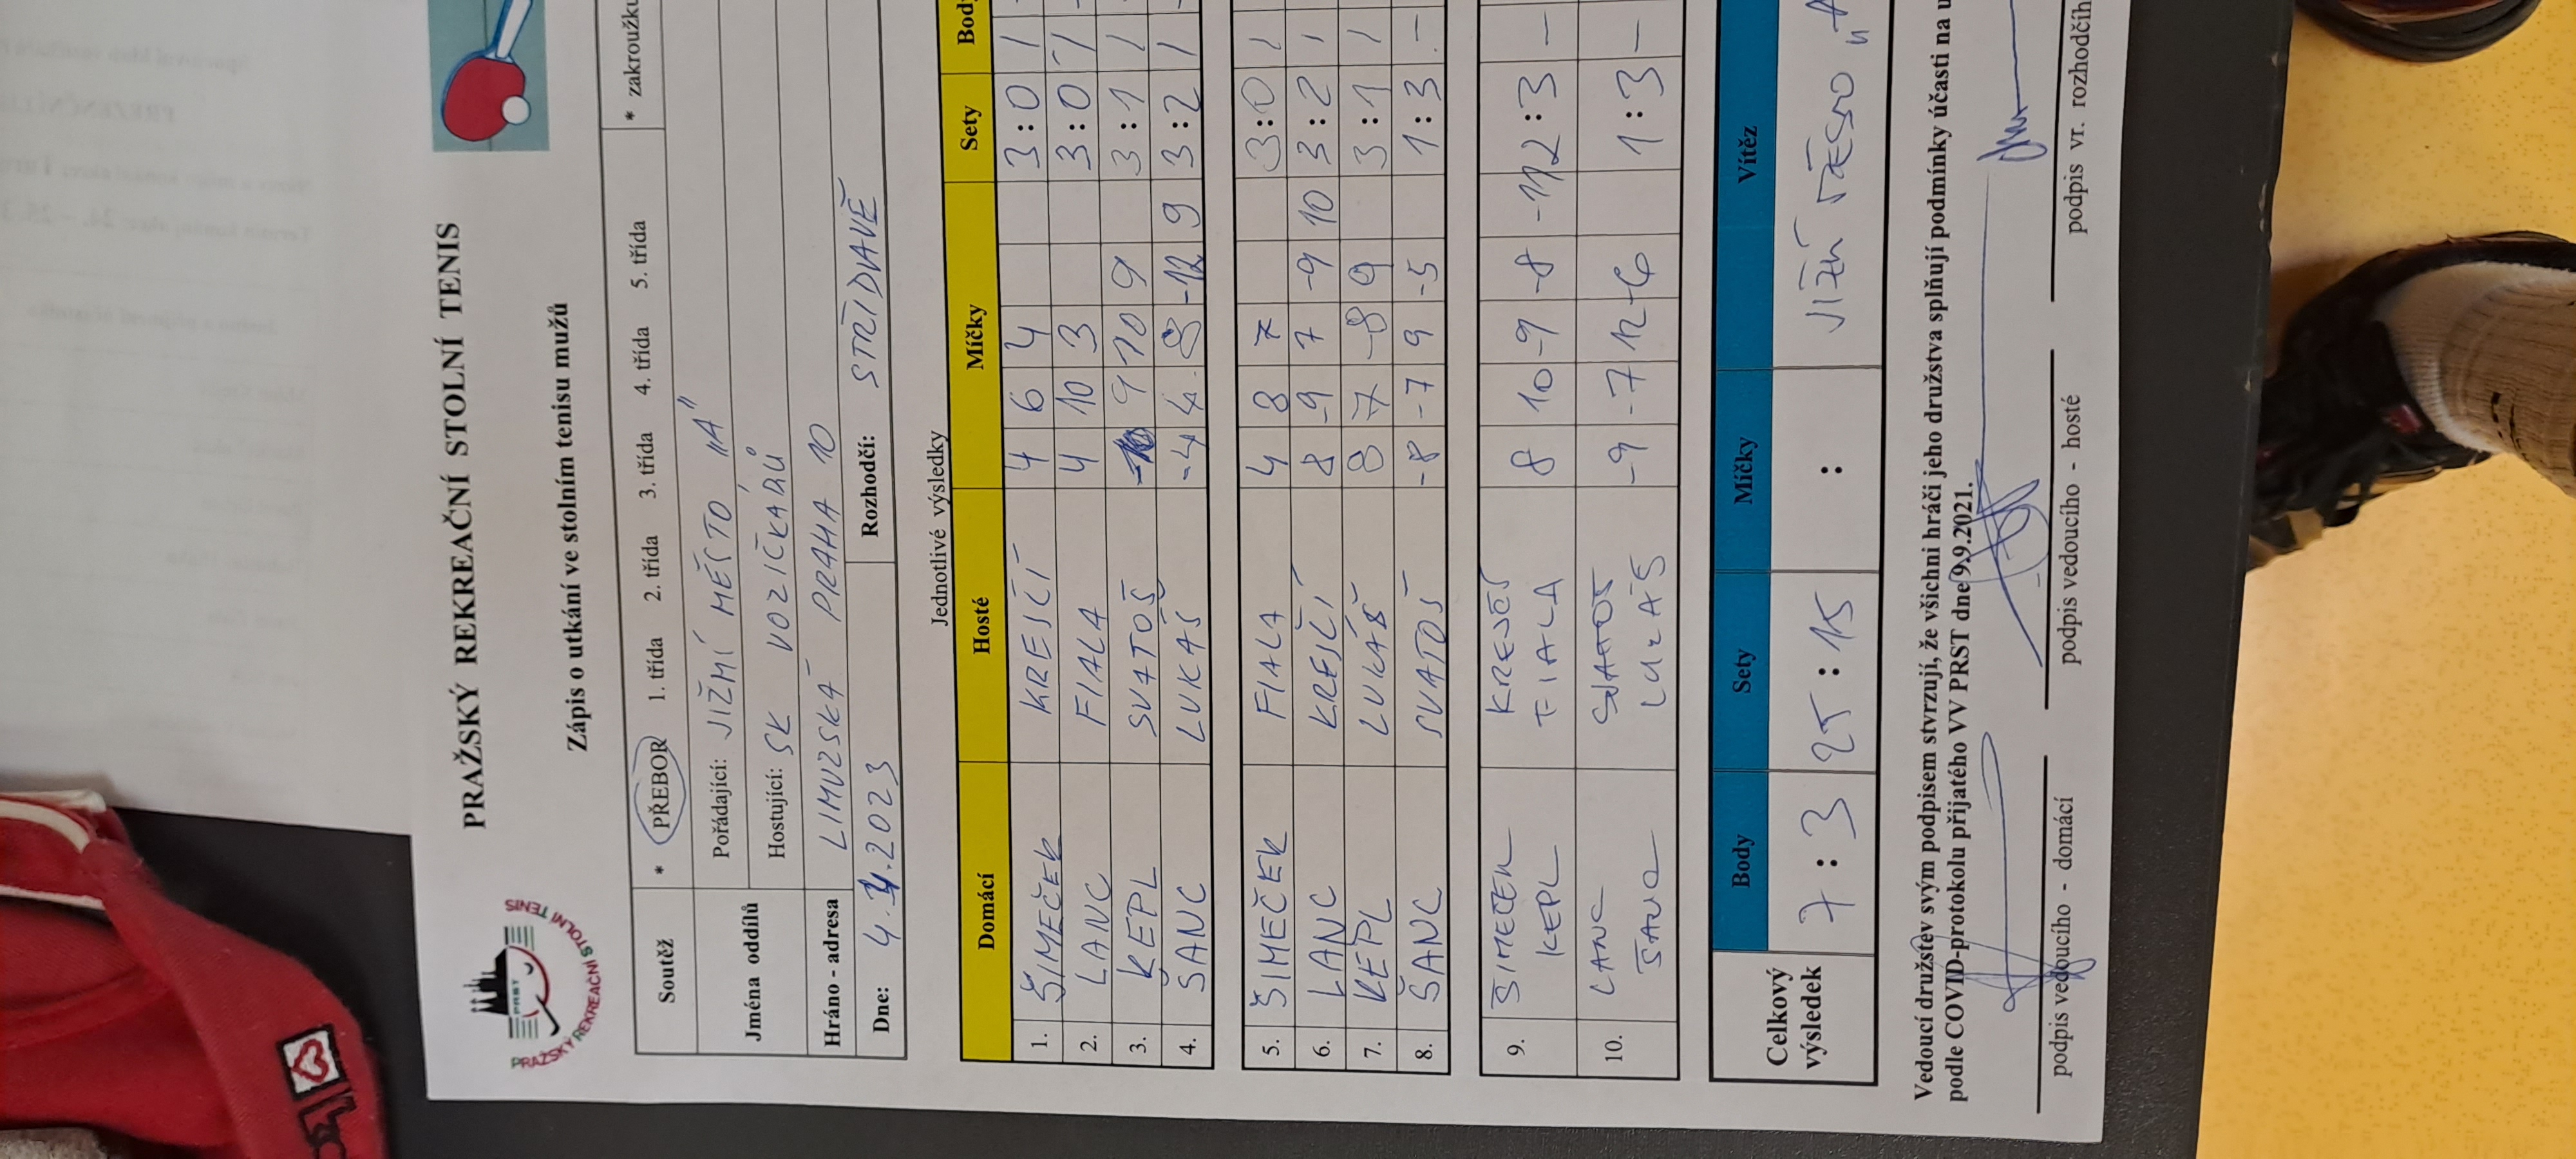 PRAŽSKÝ REKREAČNÍ STOLNÍ TENIS
PRST
PRAŽSKÝ REKREAČNÍ STOLNÍ TENIS
Zápis o utkání ve stolním tenisu mužů
Soutěž * PŘEBOR 1. třída 2. třída 3. třída 4. třída 5. třída * zakroužku
Jména oddílů Pořádající: JIŽNÍ MĚSTO "A"
Hostující: SK VOZÍČKÁŘŮ
Hráno - adresa LIMUZSKÁ PRAHA 10
Dne: 4.4.2023 Rozhodčí: STŘÍDAVĚ
Jednotlivé výsledky
Domácí Hosté Míčky Sety Body
1. ŠIMEČEK KREJČÍ 4 6 4 3:0 1
2. LANC FIALA 4 10 3 3:0 1
3. KEPL SVATOŠ -10 9 10 9 3:1 1
4. ŠANC LUKÁŠ -4 4 8 -12 9 3:2 1
5. ŠIMEČEK FIALA 4 8 7 3:0 1
6. LANC KREJČÍ 8 -9 7 -9 10 3:2 1
7. KEPL LUKÁŠ 8 7 -8 9 3:1 1
8. ŠANC SVATOŠ -8 -7 9 -5 1:3 -
9. ŠIMEČEK KREJČÍ 8 10 -9 -8 -11 2:3 -
KEPL FIALA
10. LANC SVATOŠ -9 -7 12 -6 1:3 -
ŠANC LUKÁŠ
Celkový výsledek Body Sety Míčky Vítěz
7:3 25:15 : JIŽNÍ MĚSTO "A
Vedoucí družstev svým podpisem stvrzují, že všichni hráči jeho družstva splňují podmínky účasti na u
podle COVID-protokolu přijatého VV PRST dne 9.9.2021.
podpis vedoucího - domácí podpis vedoucího - hosté podpis vr. rozhodčíh